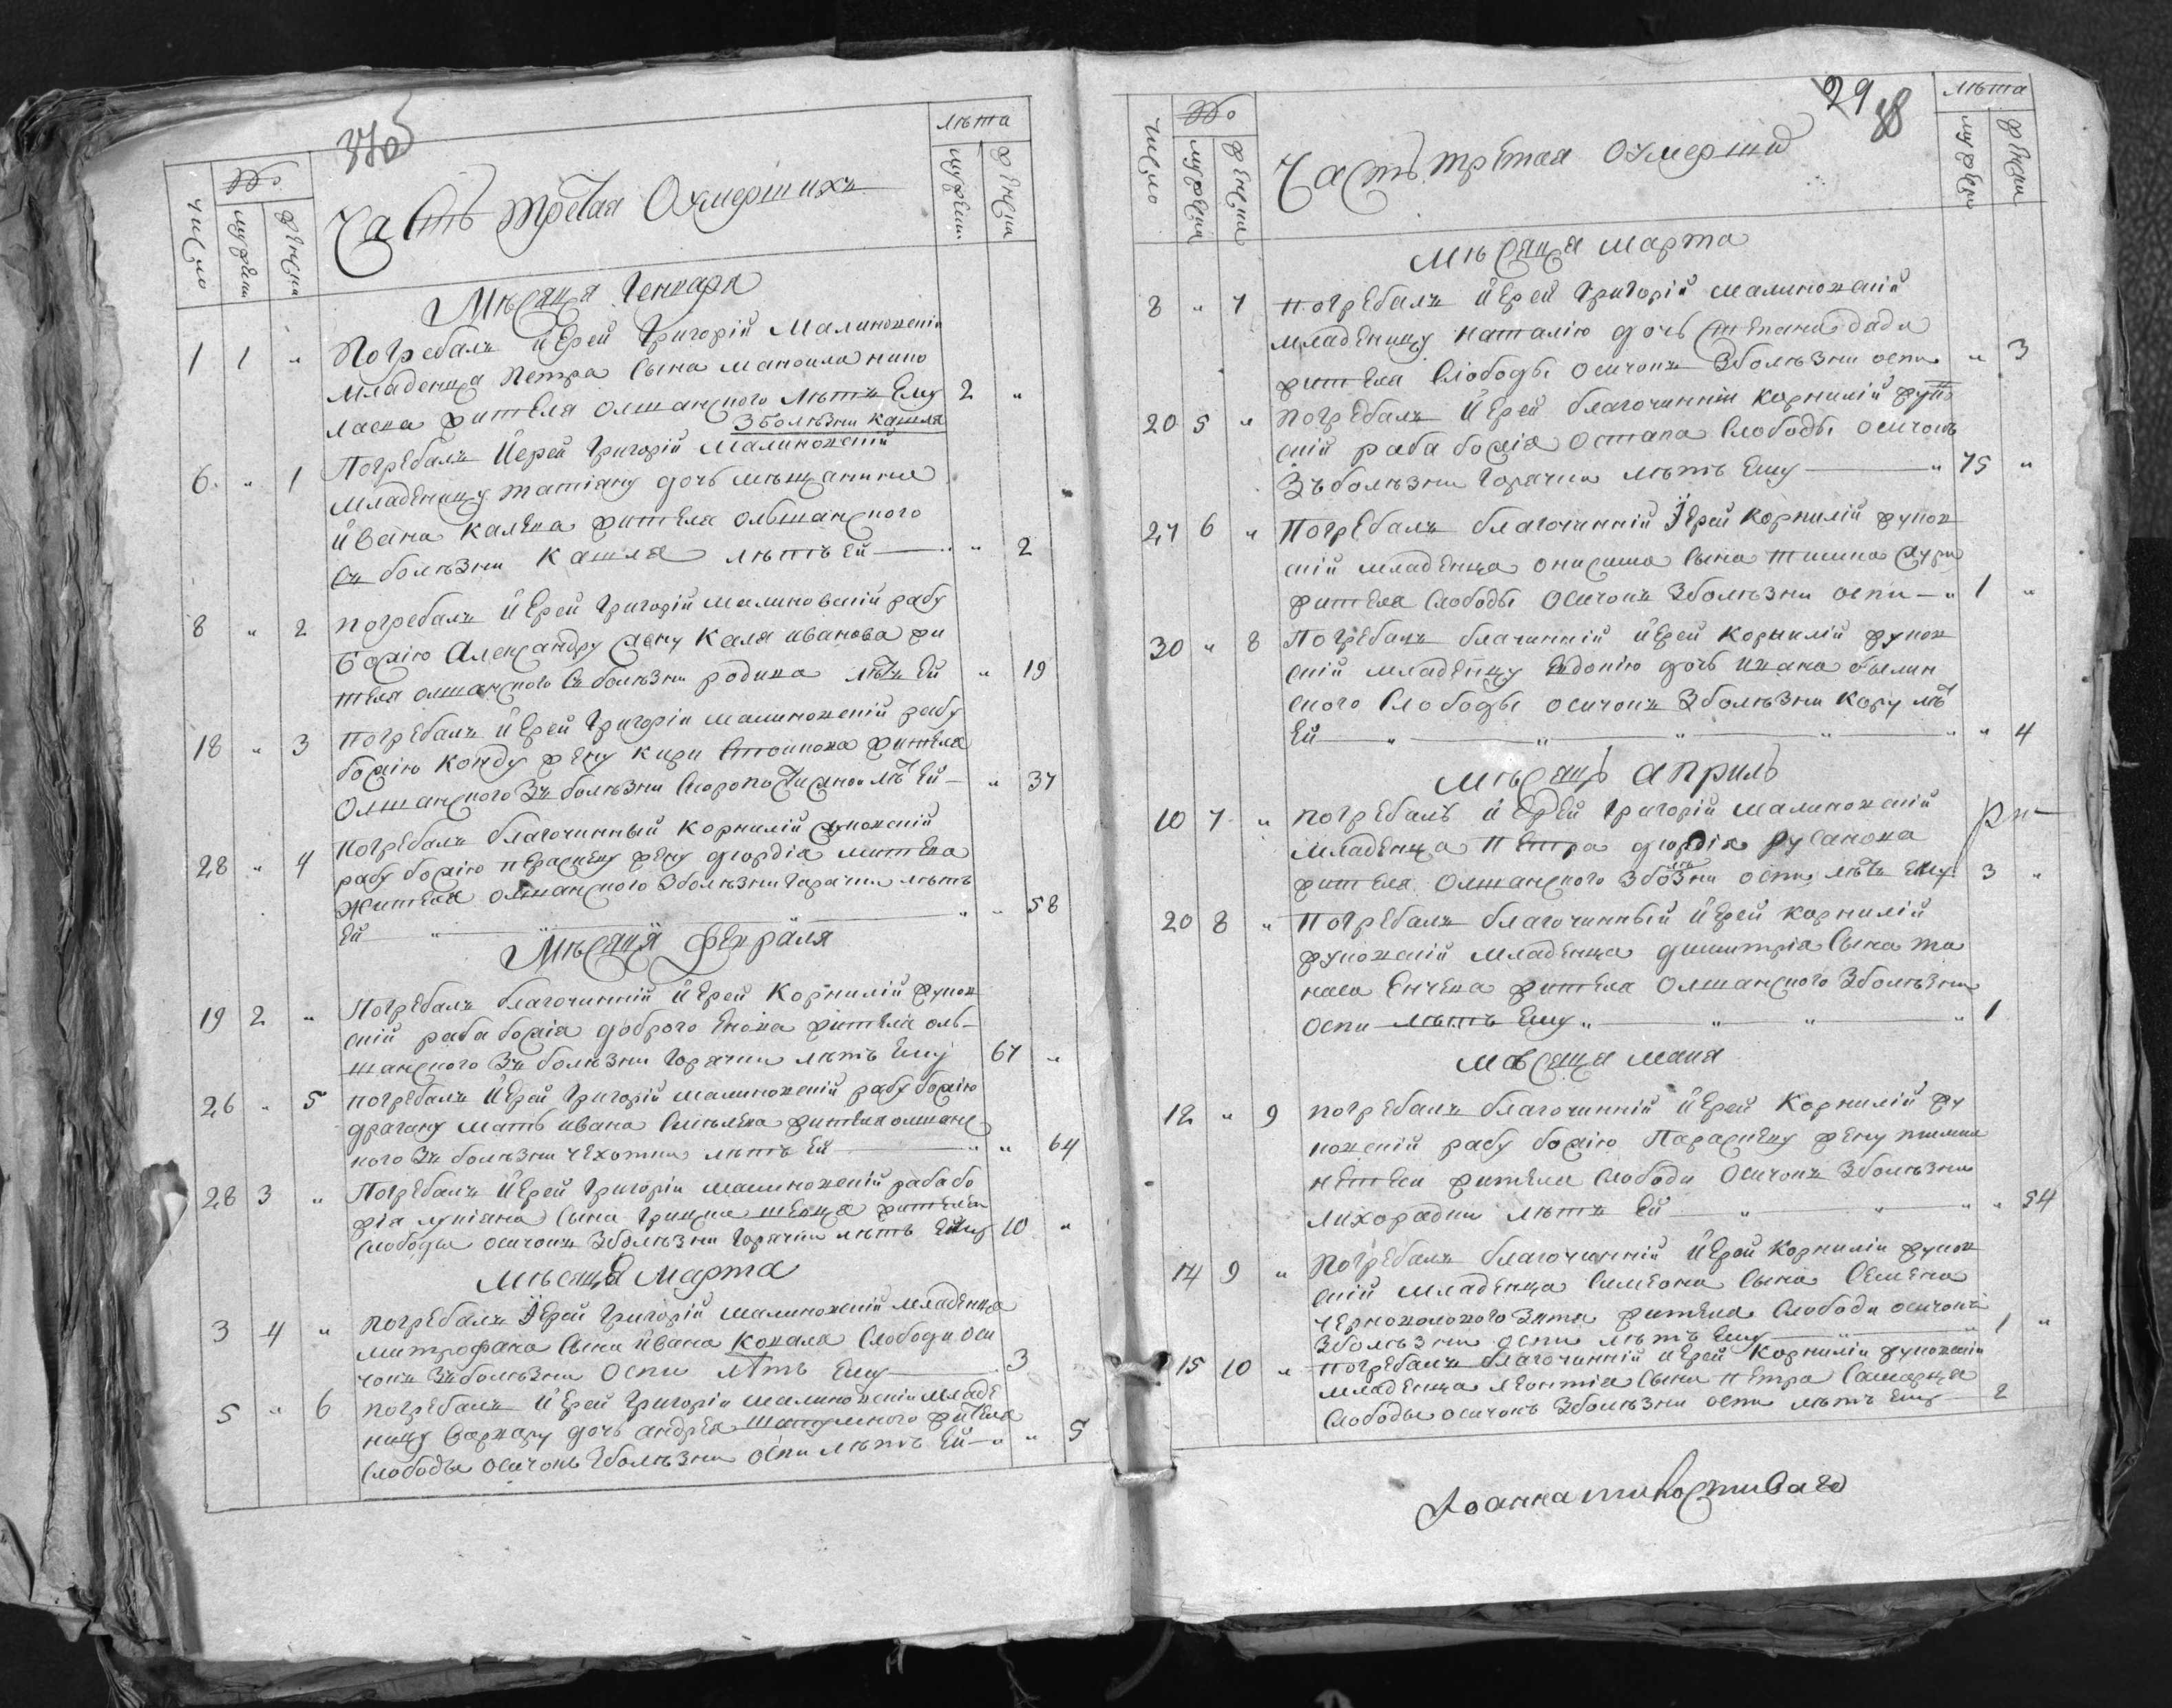 №
число
мужеска
женска
Часть третая Оумершихъ
лѣта
мужеска
женска
Мѣсяца Генваря
1 1 " Погребалъ Иерей Григорій Малиновскій
младенца Петра сына Мамоила нико
лаева жителя олшанского лѣтъ Ему 2 "
Зболѣзни кашля
6 " 1 Погребалъ Иерей Григорій Малиновскій
младеницу татіану дочь мѣщанина
Ивана Калѣва жителя ольшанского
съ болѣзни Кашля лѣтъ Ей " 2
8 " 2 погребалъ Иерей Григорій малиновскій рабу
божію Александру жену Каля иванова жи
теля олшанского съ болѣзни родива лѣтъ Ей " 19
18 " 3 погребалъ Иерей Григорій малиновскій рабу
божію Конду жену Кири Стоинова жителя
Олшанского Зъ болѣзни скоропостижной лѣтъ Ей " 37
28 " 4 погребалъ благочинный Корнилій жуковскій
рабу божію пераскеву жену гюрдіа митева
жителя олшанского Зболѣзни Горячки лѣтъ
Ей " " 58
Мѣсяца Февраля
19 2 " Погребалъ благочинній Иерей Корнилій жуков
скій раба божія доброго Енова жителя оль
шанского Зъ болѣзни Горячки лѣтъ Ему 67 "
26 " 5 погребалъ Иерей Григорій малиновскій рабу божію
драгану мать ивана жителя олшанс
кого Зъ болѣзни чехотки лѣтъ Ей " 64
28 3 " Погребалъ Иерей Григорій малиновскій раба бо
жія лукіана сына Грицка шевца жителя
слободы осичокъ Зболѣзни Горячки лѣтъ Ему 10 "
Мѣсяца Марта
3 4 " погребалъ Іерей Григорій малиновскій младенца
митрофана сына Ивана Коваля слободи оси
чокъ Зъ болѣзни Оспи лѣтъ Ему 3
5 " 6 погребалъ Иерей Григорій малиновскій младе
ницу Варвару дочь андрея шатулного жителя
слободы осичокъ Зболѣзни оспи лѣтъ Ей " 5
29
число
№
мужеска
женска
Часть третая Оумерши
лѣта
мужеска
женска
Мѣсяца марта
8 " 7 погребалъ Иерей Григорій малиновскій
младеницу наталію дочь степана дади
жителя слободы осичокъ Зболѣзни оспи " 3
20 5 " погребалъ Иерей благочинній Корнилій жуков
скій раба божія Остапа слободы осичокъ
Зъ болѣзни Горячки лѣтъ Ему " 75 "
27 6 " Погребалъ благочинній Іерей Корнилій жуков
скій младенца онисима сына тимка
жителя слободы Осичокъ Зболѣзни оспи " 1 "
30 " 8 Погребалъ благочинній Иерей Корнилій жуков
скій младеницу Евдокію дочь ивана билин
ского слободы осичокъ Зболѣзни Кору лѣтъ
Ей " " " " " 4
Мѣсяцъ априль
10 7 " погребалъ Иерей Григорій малиновскій
младенца Петра гюрдія Русанова
жителя Олшанского Зболѣзни оспи лѣтъ Ему 3 "
20 8 " Погребалъ благочинный Иерей Корнилій
жуковскій младенца димитрія сына та
наса Енчева жителя Олшанского Зболѣзни
Оспи лѣтъ Ему " " " " 1
Мѣсяца маия
12 " 9 погребалъ благочинній Иерей Корнилій жу
ковскій рабу божію Параскеву жену тимка
жителя слободи Осичокъ Зболѣзни
лихорадки лѣтъ Ей " " " 54
14 9 " Погребалъ благочинній Иерей Корнилій жуков
скій младенца симеона сына семена
жителя слободи осичокъ
Зболѣзни оспи лѣтъ Ему 1 "
15 10 " погребалъ благочинній Иерей Корнилій жуковскій
младенца леонтія сына петра
слободы осичокъ Зболѣзни оспи лѣтъ Ему 2
Іоанна милостиваго